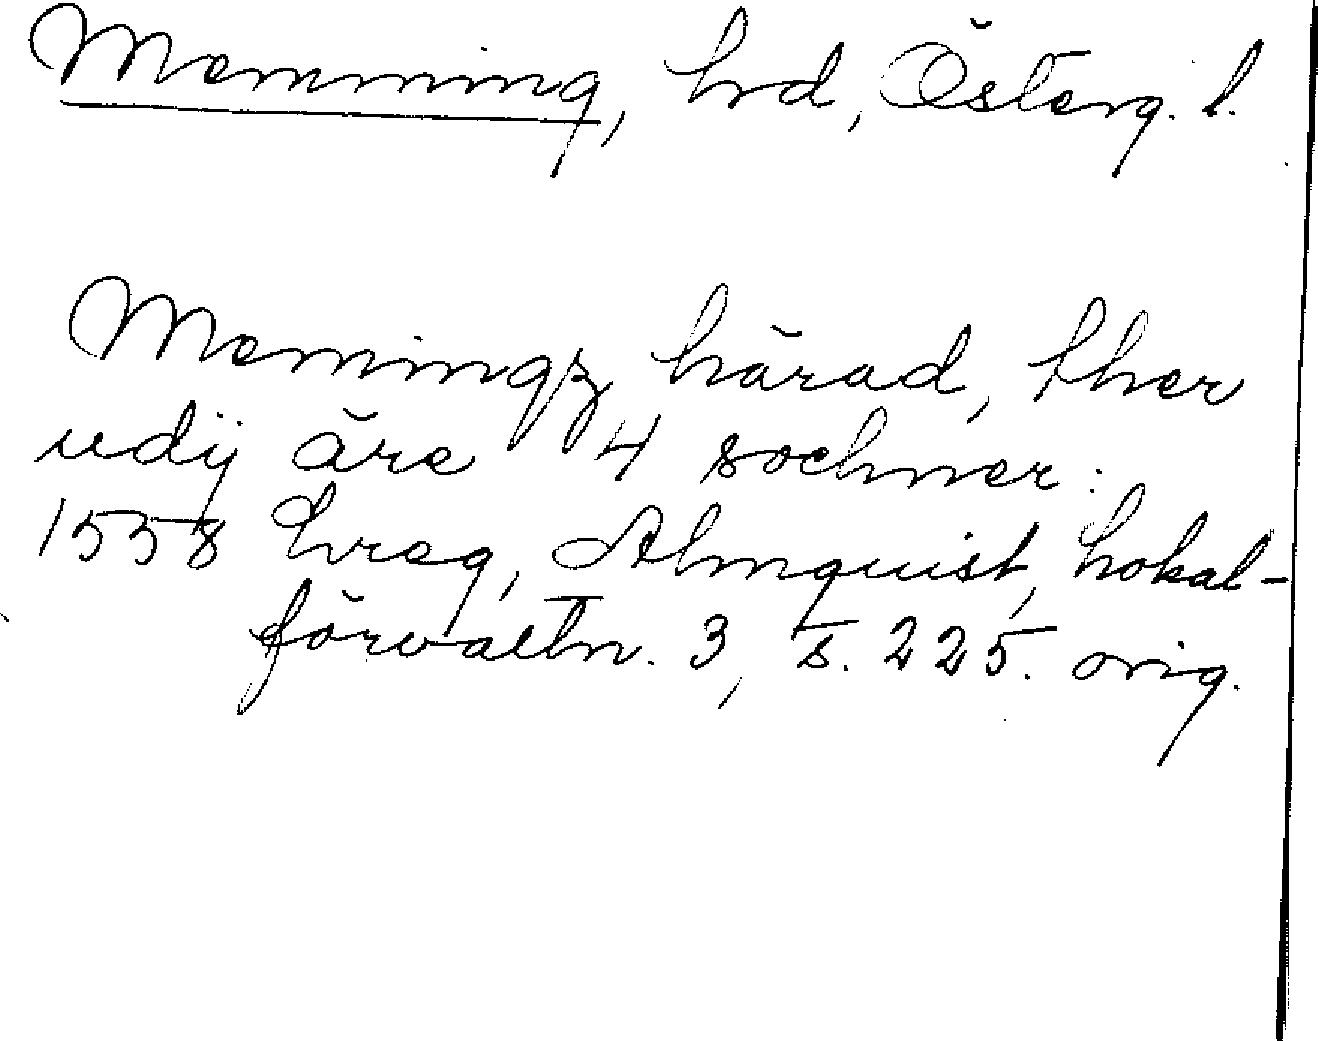 Memming, hrd, Österg. l.
Memingz härad, ther
udij äre 4 sochner.
1558 hreg, Almquist, Lokal-
förvaltn. 3, s. 225. orig.